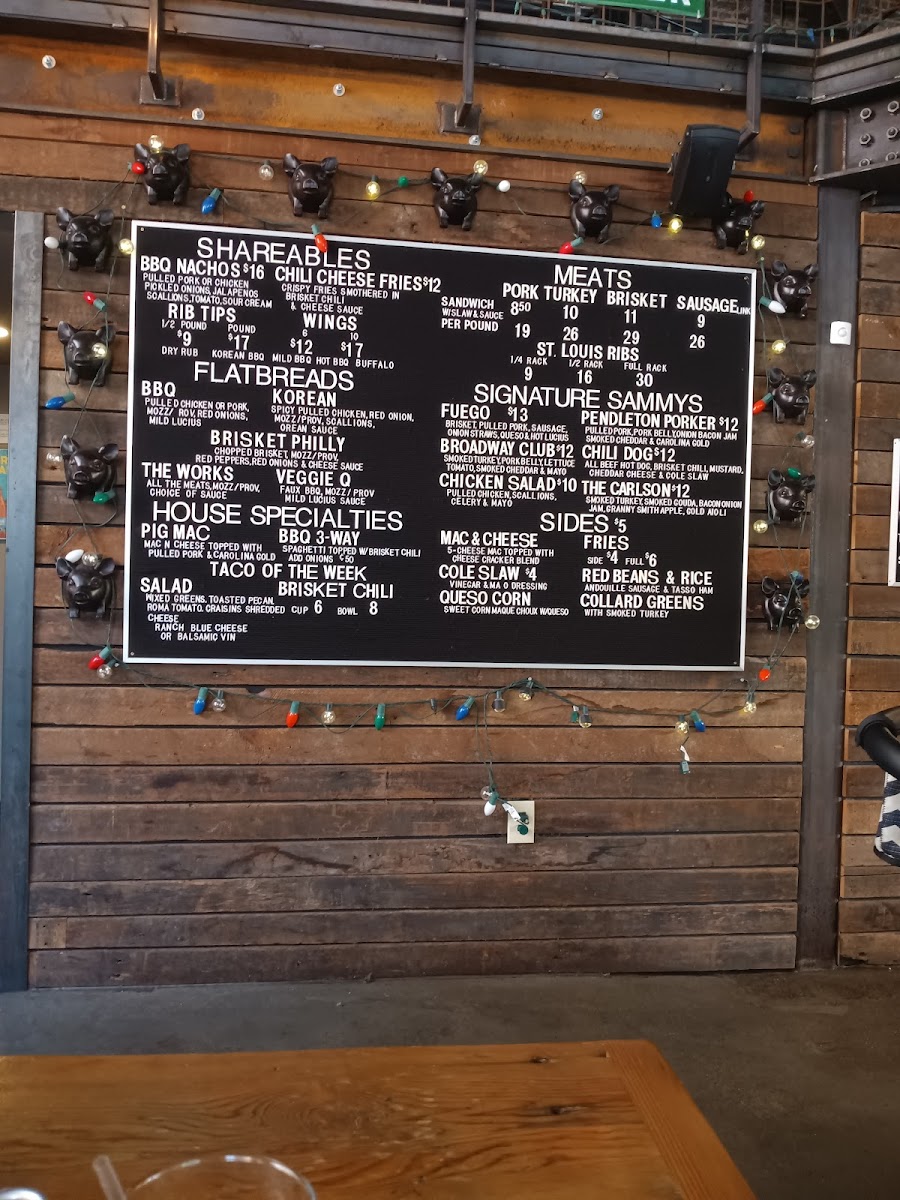 SHAREABLES
BBQ NACHOS $16
PULLED PORK OR CHICKEN
PICKLED ONIONS, JALAPENOS
SCALLIONS, TOMATO, SOUR CREAM
CHILI CHEESE FRIES $12
CRISPY FRIES SMOTHERED IN
BRISKET CHILI
& CHEESE SAUCE
RIB TIPS
1/2 POUND POUND
$9 $17
DRY RUB KOREAN BBQ
WINGS
6 10
$12 $17
MILD BBQ HOT BBQ BUFFALO
FLATBREADS
BBQ
PULLED CHICKEN OR PORK,
MOZZ/ ROV, RED ONIONS,
MILD LUCIUS
KOREAN
SPICY PULLED CHICKEN, RED ONION,
MOZZ/PROV, SCALLIONS,
OREAN SAUCE
BRISKET PHILLY
CHOPPED BRISKET, MOZZ/PROV,
RED PEPPERS, RED ONIONS & CHEESE SAUCE
THE WORKS
ALL THE MEATS, MOZZ/PROV,
CHOICE OF SAUCE
VEGGIE Q
FAUX BBQ, MOZZ/ PROV
MILD LUCIUS SAUCE
HOUSE SPECIALTIES
PIG MAC
MAC N CHEESE TOPPED WITH
PULLED PORK & CAROLINA GOLD
BBQ 3-WAY
SPAGHETTI TOPPED W/BRISKET CHILI
ADD ONIONS
TACO OF THE WEEK
SALAD
MIXED GREENS, TOASTED PECAN,
ROMA TOMATO, CRAISINS SHREDDED
CHEESE
RANCH BLUE CHEESE
OR BALSAMIC VIN
BRISKET CHILI
CUP 6 BOWL 8
MEATS
PORK TURKEY BRISKET SAUSAGE LINK
SANDWICH 8 50 10 11 9
W/SLAW & SAUCE
PER POUND 19 26 29 26
ST. LOUIS RIBS
1/4 RACK 1/2 RACK FULL RACK
9 16 30
SIGNATURE SAMMYS
FUEGO $13
BRISKET, PULLED PORK, SAUSAGE,
ONION STRAWS, QUESO & HOT LUCIUS
BROADWAY CLUB $12
SMOKED TURKEY, PORK BELLY, LETTUCE
TOMATO, SMOKED CHEDDAR & MAYO
CHICKEN SALAD $10
PULLED CHICKEN, SCALLIONS,
CELERY & MAYO
PENDLETON PORKER $12
PULLED PORK, PORK BELLY, ONION BACON JAM
SMOKED CHEDDAR & CAROLINA GOLD
CHILI DOG $12
ALL BEEF HOT DOG, BRISKET CHILI, MUSTARD,
CHEDDAR CHEESE & COLE SLAW
THE CARLSON $12
SMOKED TURKEY, SMOKED GOUDA, BACON ONION
JAM, GRANNY SMITH APPLE, GOLD AIOLI
SIDES $5
MAC & CHEESE
5-CHEESE MAC TOPPED WITH
CHEESE CRACKER BLEND
COLE SLAW $4
VINEGAR & MA O DRESSING
QUESO CORN
SWEET CORN MAQUE CHOUX W/QUESO
FRIES
SIDE $4 FULL $6
RED BEANS & RICE
ANDOUILLE SAUSAGE & TASSO HAM
COLLARD GREENS
WITH SMOKED TURKEY